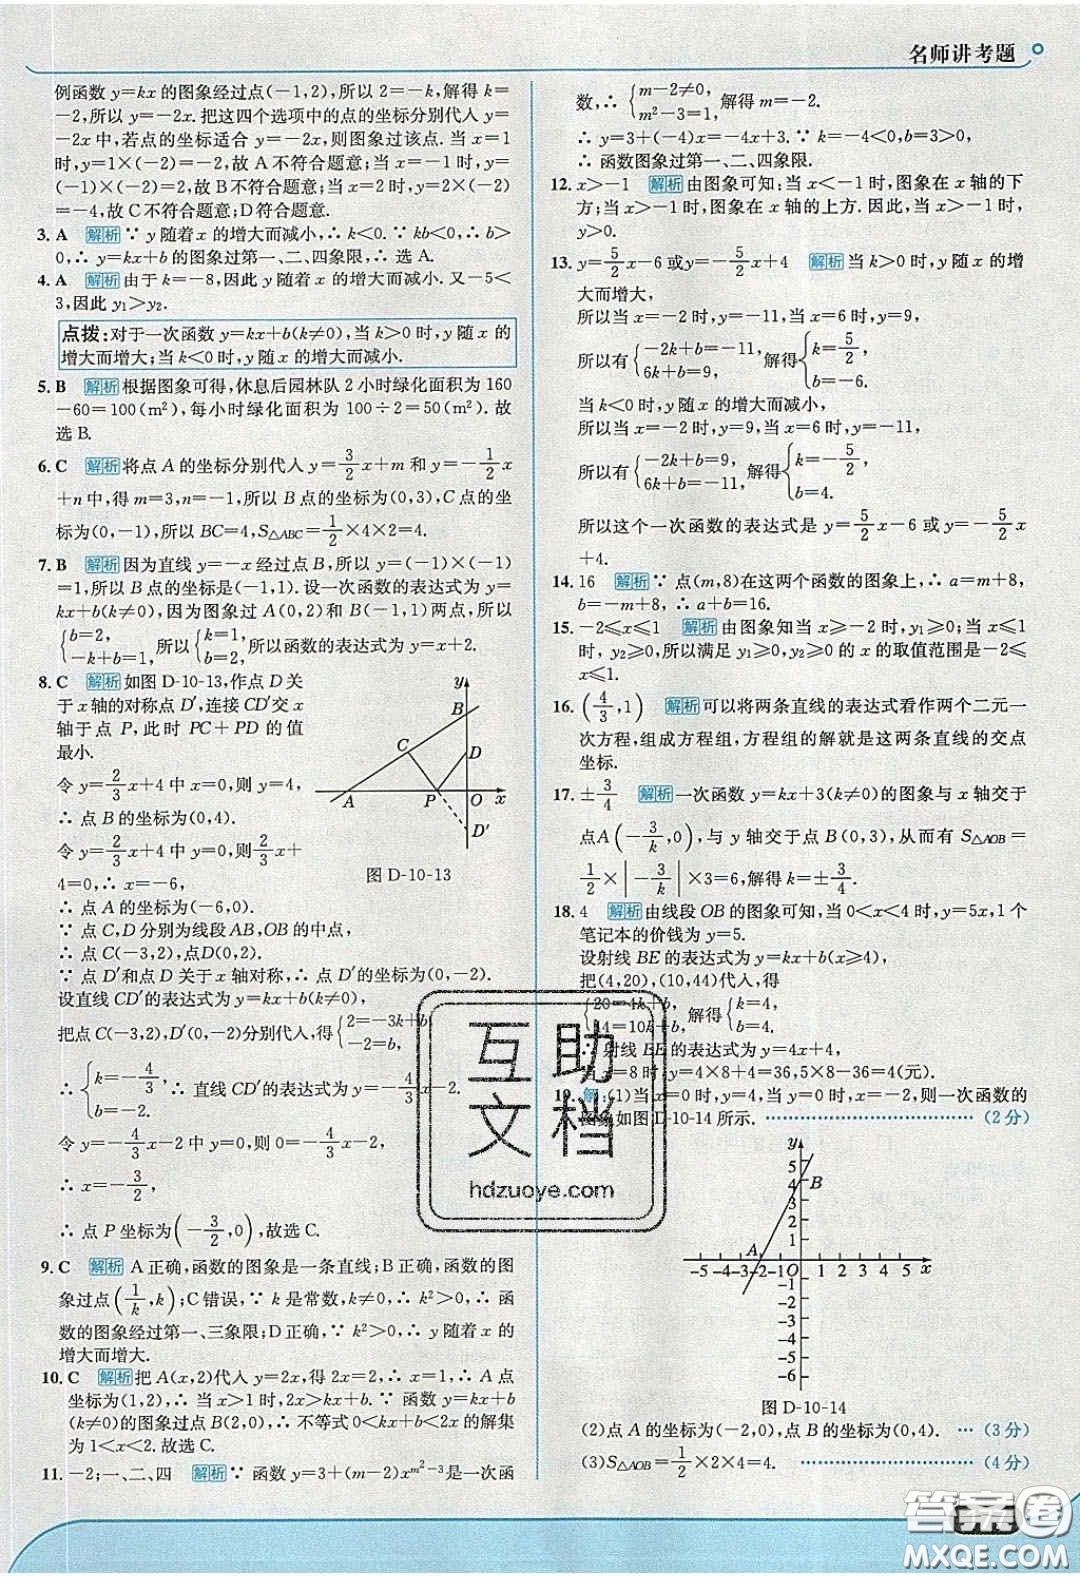 名师讲考题
例函数 y=kx 的图象经过点(-1,2),所以 2=-k,解得 k=
-2,所以 y=-2x.把这四个选项中的点的坐标分别代入 y=
-2x 中,若点的坐标适合 y=-2x,则图象过该点.当 x=1
时,y=1×(-2)=-2,故 A 不符合题意;当 x=-1 时,y=
(-1)×(-2)=2,故 B 不符合题意;当 x=2 时,y=2×(-2)
=-4,故 C 不符合题意;D 符合题意.
3. A 解析 ∵ y 随着 x 的增大而减小,∴ k<0. ∵ kb<0,∴ b>
0,∴ y=kx+b 的图象过第一、二、四象限,∴ 选 A.
4. A 解析 由于 k=-8,因此 y 随着 x 的增大而减小.又-5<
3,因此 y₁>y₂.
点拨:对于一次函数 y=kx+b(k≠0),当 k>0 时,y 随 x 的
增大而增大;当 k<0 时,y 随 x 的增大而减小.
5. B 解析 根据图象可得,休息后园林队 2 小时绿化面积为 160
-60=100(m²),每小时绿化面积为 100÷2=50(m²).故
选 B.
6. C 解析 将点 A 的坐标分别代入 y=3/2 x+m 和 y=-1/2 x
+n 中,得 m=3,n=-1,所以 B 点的坐标为(0,3),C 点的坐
标为(0,-1),所以 BC=4,S△ABC=1/2×4×2=4.
7. B 解析 因为直线 y=-x 经过点 B,所以 y=(-1)×(-1)
=1,所以 B 点的坐标是(-1,1).设一次函数的表达式为 y=
kx+b(k≠0),因为图象过 A(0,2)和 B(-1,1)两点,所以
{b=2, -k+b=1, 所以{k=1, b=2, 所以函数的表达式为 y=x+2.
8. C 解析 如图 D-10-13,作点 D 关
于 x 轴的对称点 D′,连接 CD′交 x
轴于点 P,此时 PC+PD 的值
最小.
令 y=2/3 x+4 中 x=0,则 y=4,
∴ 点 B 的坐标为(0,4).
令 y=2/3 x+4 中 y=0,则 2/3 x+
4=0,∴ x=-6,
∴ 点 A 的坐标为(-6,0).
∵ 点 C,D 分别为线段 AB,OB 的中点,
∴ 点 C(-3,2),点 D(0,2).
∵ 点 D′和点 D 关于 x 轴对称,∴ 点 D′的坐标为(0,-2).
设直线 CD′的表达式为 y=kx+b(k≠0),
把点 C(-3,2),D′(0,-2)分别代入,得{2=-3k+b, -2=b,
∴ {k=-4/3, b=-2. ∴ 直线 CD′的表达式为 y=-4/3 x-2.
令 y=-4/3 x-2 中 y=0,则 0=-4/3 x-2,
∴ x=-3/2,
∴ 点 P 坐标为(-3/2,0),故选 C.
y
B
C
D
A
P
O
x
D′
图 D-10-13
9. C 解析 A 正确,函数的图象是一条直线;B 正确,函数的图
象过点(1/k,k);C 错误,∵ k 是常数,k≠0,∴ k²>0,∴ 函
数的图象经过第一、三象限;D 正确,∵ k²>0,∴ y 随着 x 的
增大而增大.
10. C 解析 把 A(x,2)代入 y=2x,得 2x=2,∴ x=1,∴ A 点
坐标为(1,2),∴ 当 x>1 时,2x>kx+b. ∵ 函数 y=kx+b
(k≠0)的图象过点 B(2,0),∴ 不等式 0<kx+b<2x 的解集
为 1<x<2.故选 C.
11. -2;一、二、四 解析 ∵ 函数 y=3+(m-2)x^(m²-3)是一次函
数,∴ {m-2≠0, m²-3=1, 解得 m=-2.
∴ y=3+(-4)x=-4x+3. ∵ k=-4<0,b=3>0,
∴ 函数图象过第一、二、四象限.
12. x>-1 解析 由图象可知:当 x<-1 时,图象在 x 轴的下
方;当 x>-1 时,图象在 x 轴的上方.因此,当 x>-1 时,
y>0.
13. y=5/2 x-6 或 y=-5/2 x+4 解析 当 k>0 时,y 随 x 的增
大而增大,
所以当 x=-2 时,y=-11,当 x=6 时,y=9,
所以有{-2k+b=-11, 6k+b=9, 解得{k=5/2, b=-6.
当 k<0 时,y 随 x 的增大而减小,
所以当 x=-2 时,y=9,当 x=6 时,y=-11,
所以有{-2k+b=9, 6k+b=-11, 解得{k=-5/2, b=4.
所以这个一次函数的表达式是 y=5/2 x-6 或 y=-5/2 x
+4.
14. 16 解析 ∵ 点(m,8)在这两个函数的图象上,∴ a=m+8,
b=-m+8,∴ a+b=16.
15. -2≤x≤1 解析 由图象知当 x≥-2 时,y₁≥0;当 x≤1
时,y₂≥0,所以满足 y₁≥0,y₂≥0 的 x 的取值范围是-2≤
x≤1.
16. (4/3,1) 解析 可以将两条直线的表达式看作两个二元一
次方程,组成方程组,方程组的解就是这两条直线的交点
坐标.
17. ±3/4 解析 一次函数 y=kx+3(k≠0)的图象与 x 轴交于
点 A(-3/k,0),与 y 轴交于点 B(0,3),从而有 S△AOB=
1/2×|-3/k|×3=6,解得 k=±3/4.
18. 4 解析 由线段 OB 的图象可知,当 0<x<4 时,y=5x,1 个
笔记本的价钱为 y=5.
设射线 BE 的表达式为 y=kx+b(x≥4),
把(4,20),(10,44)代入,得
{20=4k+b, 44=10k+b, 解得{k=4, b=4.
∴ 射线 BE 的表达式为 y=4x+4,
当 x=8 时,y=4×8+4=36,5×8-36=4(元).
19. 解:(1)当 x=0 时,y=4,当 y=0 时,x=-2,则一次函数的
图象如图 D-10-14 所示. ………………(2 分)
y
5
4 B
3
2
1
A
-5 -4 -3 -2 -1 O 1 2 3 4 5 x
-1
-2
-3
-4
-5
-6
图 D-10-14
(2)点 A 的坐标为(-2,0),点 B 的坐标为(0,4). …(3 分)
(3)S△AOB=1/2×2×4=4. ………………(4 分)
互助
文档
hdzuoye.com
答案圈
MXQE.COM